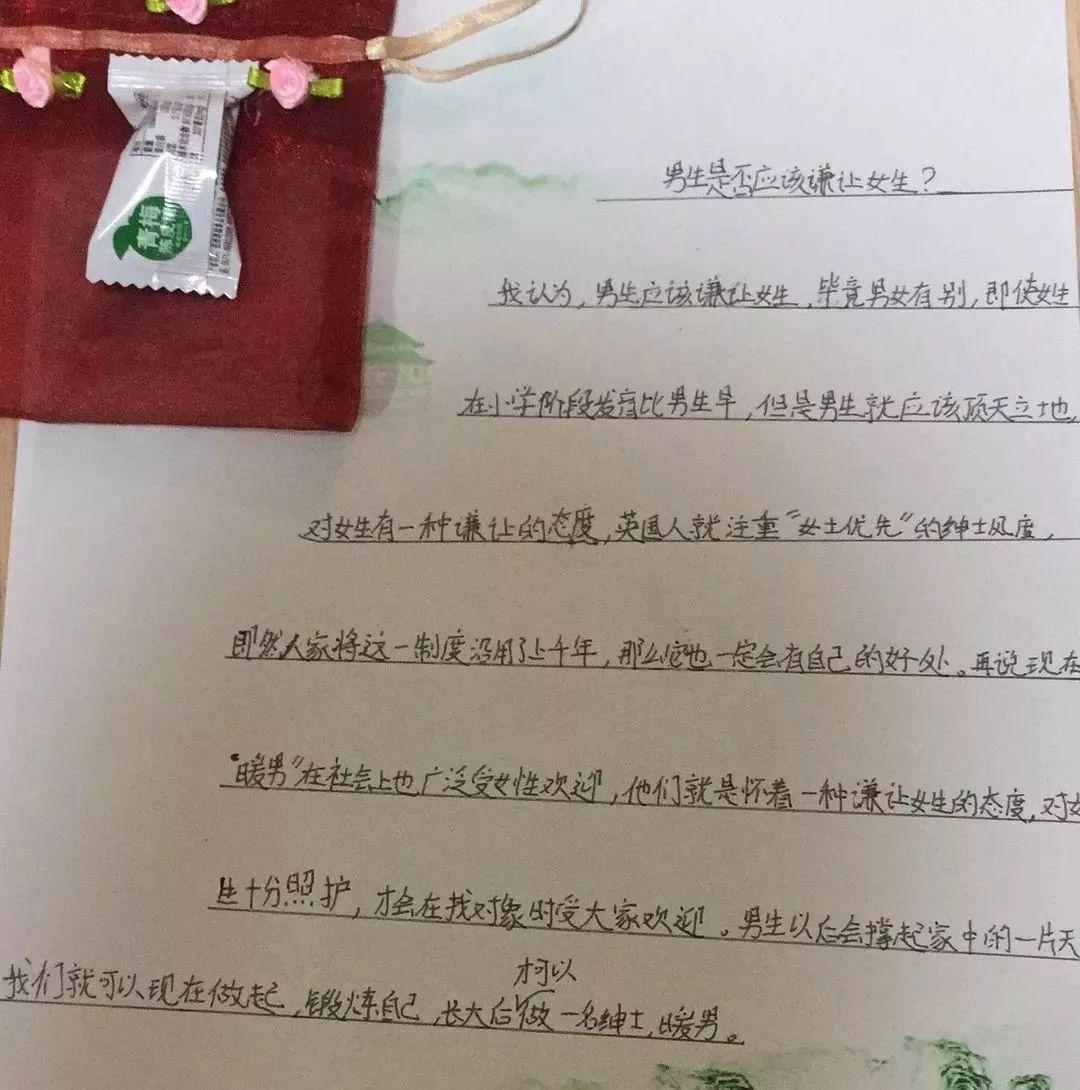 青梅
男生是否应该谦让女生?
我认为,男生应该谦让女生,毕竟男女有别,即使女生
在小学阶段发育比男生早,但是男生就应该顶天立地,
对女生有一种谦让的态度,英国人就注重“女士优先”的绅士风度,
即然人家将这一制度沿用了上千年,那么它也一定会有自己的好处。再说现在
“暖男”在社会上也广泛受女性欢迎,他们就是怀着一种谦让女生的态度,对女
生十分照护,才会在找对象时受大家欢迎。男生以后会撑起家中的一片天
才可以
我们就可以现在做起,锻炼自己,长大后做一名绅士,暖男。